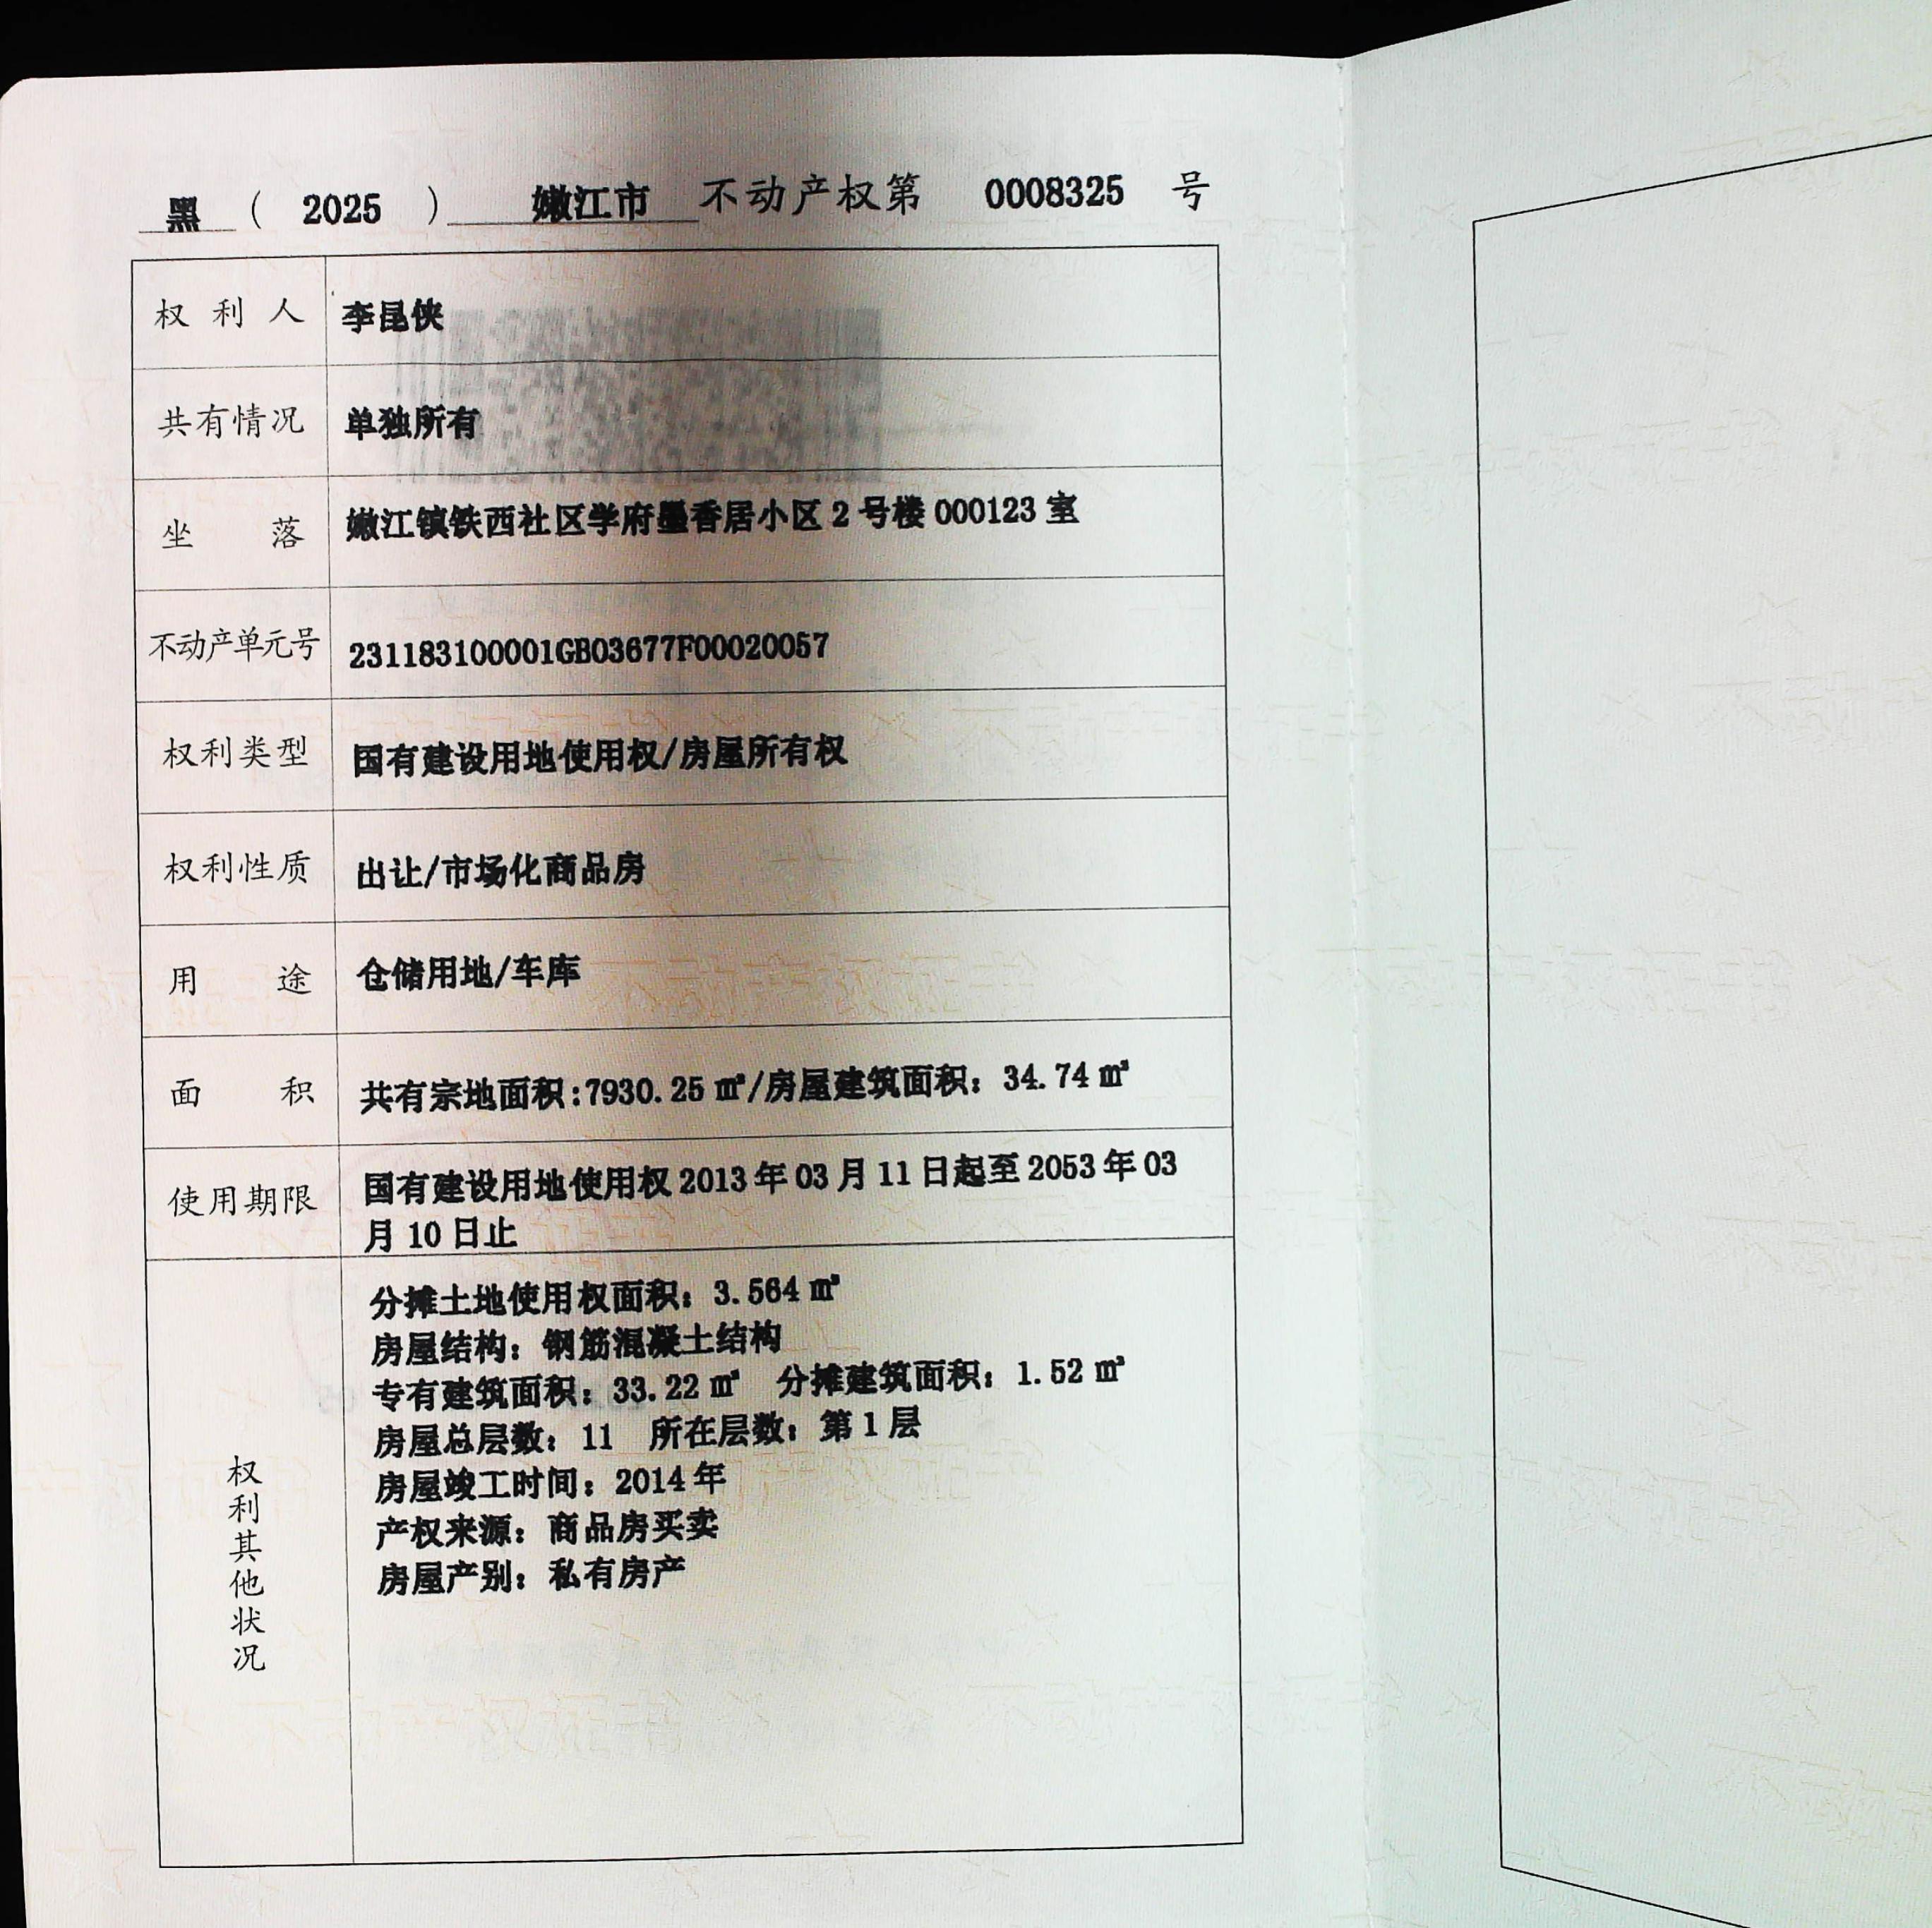 黑 ( 2025 ) 嫩江市 不动产权第 0008325 号
权利人 李昆侠
共有情况 单独所有
坐落 嫩江镇铁西社区学府墨香居小区 2 号楼 000123 室
不动产单元号 231183100001GB03677F00020057
权利类型 国有建设用地使用权/房屋所有权
权利性质 出让/市场化商品房
用途 仓储用地/车库
面积 共有宗地面积:7930.25 ㎡/房屋建筑面积：34.74 ㎡
使用期限 国有建设用地使用权 2013 年 03 月 11 日起至 2053 年 03
月 10 日止
权利其他状况
分摊土地使用权面积：3.564 ㎡
房屋结构：钢筋混凝土结构
专有建筑面积：33.22 ㎡ 分摊建筑面积：1.52 ㎡
房屋总层数：11 所在层数：第 1 层
房屋竣工时间：2014 年
产权来源：商品房买卖
房屋产别：私有房产